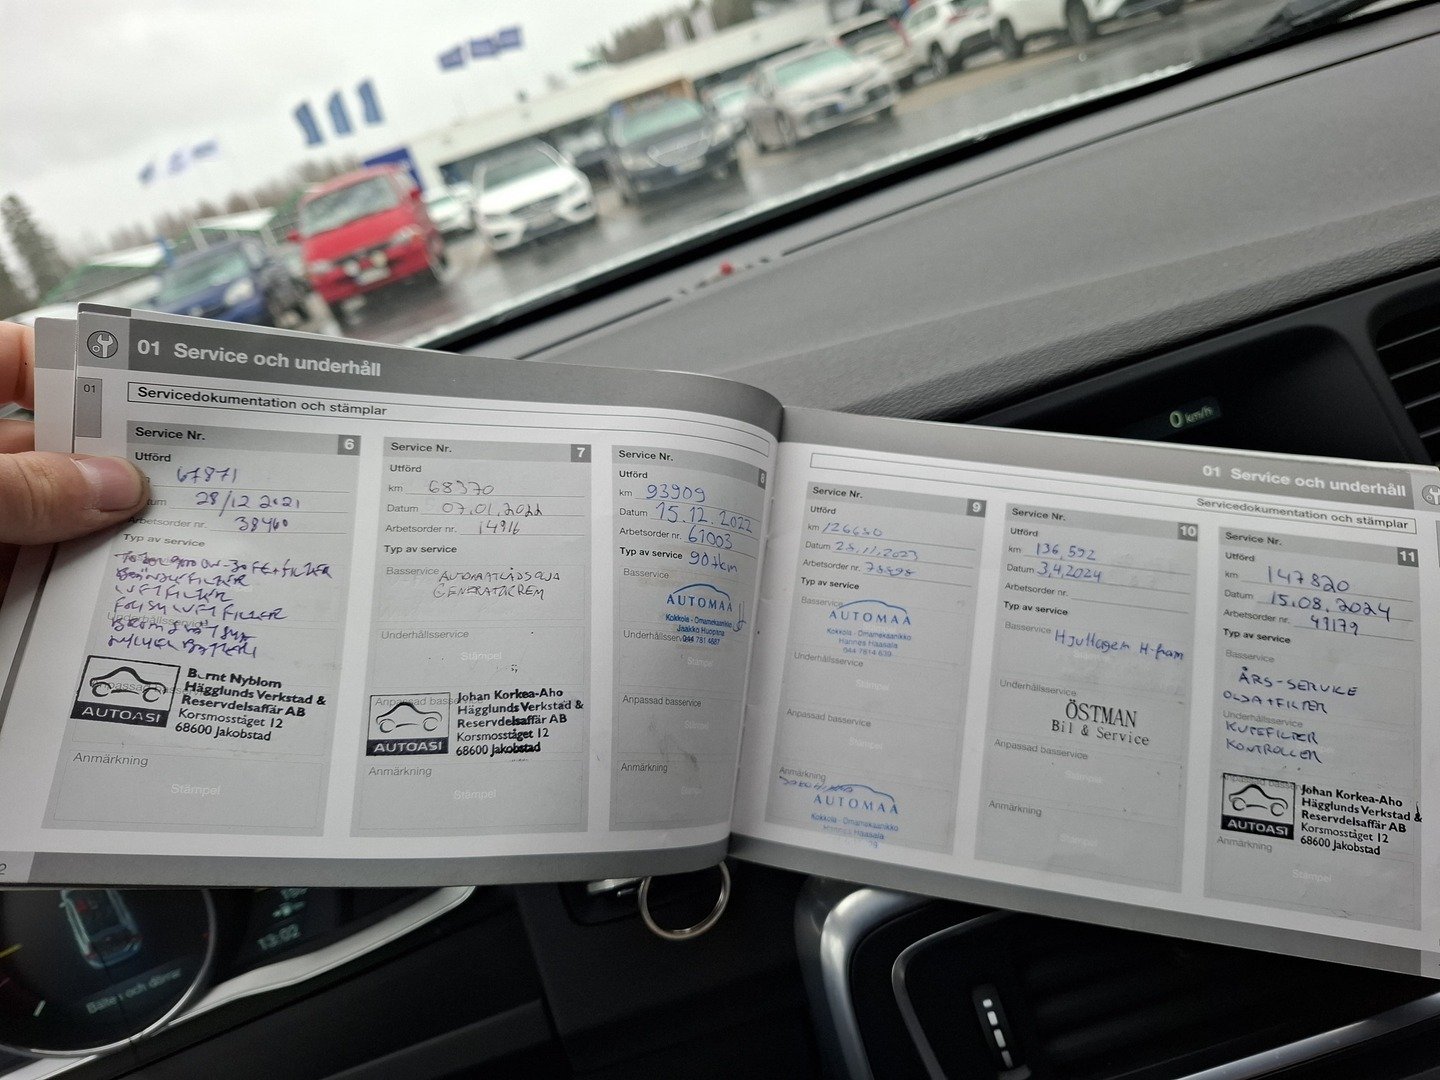 01 Service och underhåll
01
Servicedokumentation och stämplar
Service Nr. 6
Utförd
67871
28/12 2021
Arbetsorder nr. 38460
Typ av service
BRÄNSLEFILTER
LUFTFILTER
Bernt Nyblom
Hägglunds Verkstad &
Reservdelsaffär AB
Korsmosståget 12
68600 Jakobstad
AUTOASI
Anmärkning
Stämpel
Service Nr. 7
Utförd
km 68370
Datum 07.01.2022
Arbetsorder nr. 14916
Typ av service
Basservice
AUTOMATLÅDSOLJA
GENERATORREM
Underhållsservice
Stämpel
Anpassad basservice
Johan Korkea-Aho
Hägglunds Verkstad &
Reservdelsaffär AB
Korsmosståget 12
68600 Jakobstad
AUTOASI
Anmärkning
Stämpel
Service Nr. 8
Utförd
km 93909
Datum 15.12.2022
Arbetsorder nr. 61003
Typ av service 90tkm
Basservice
AUTOMAA
Kokkola - Omamekaanikko
Jaakko Huopana
044 781 4887
Underhållsservice
Stämpel
Anpassad basservice
Stämpel
Anmärkning
01 Service och underhåll
Servicedokumentation och stämplar
Service Nr. 9
Utförd
km 126650
Datum
Arbetsorder nr.
Typ av service
Basservice
AUTOMAA
Kokkola - Omamekaanikko
Hannes Haasala
044 7814 639
Underhållsservice
Stämpel
Anpassad basservice
Stämpel
Anmärkning
AUTOMAA
Kokkola - Omamekaanikko
Hannes Haasala
Service Nr. 10
Utförd
km 136,592
Datum 3,4,2024
Arbetsorder nr.
Typ av service
Basservice Hjullager H-fram
Underhållsservice
ÖSTMAN
Bil & Service
Anpassad basservice
Stämpel
Anmärkning
Stämpel
Service Nr. 11
Utförd
km 147820
Datum 15.08.2024
Arbetsorder nr. 49179
Typ av service
Basservice
ÅRS-SERVICE
OLJA+FILTER
Underhållsservice
KUPEFILTER
KONTROLLER
Johan Korkea-Aho
Hägglunds Verkstad &
Reservdelsaffär AB
Korsmosståget 12
68600 Jakobstad
AUTOASI
Anmärkning
Stämpel
0 km/h
13:02